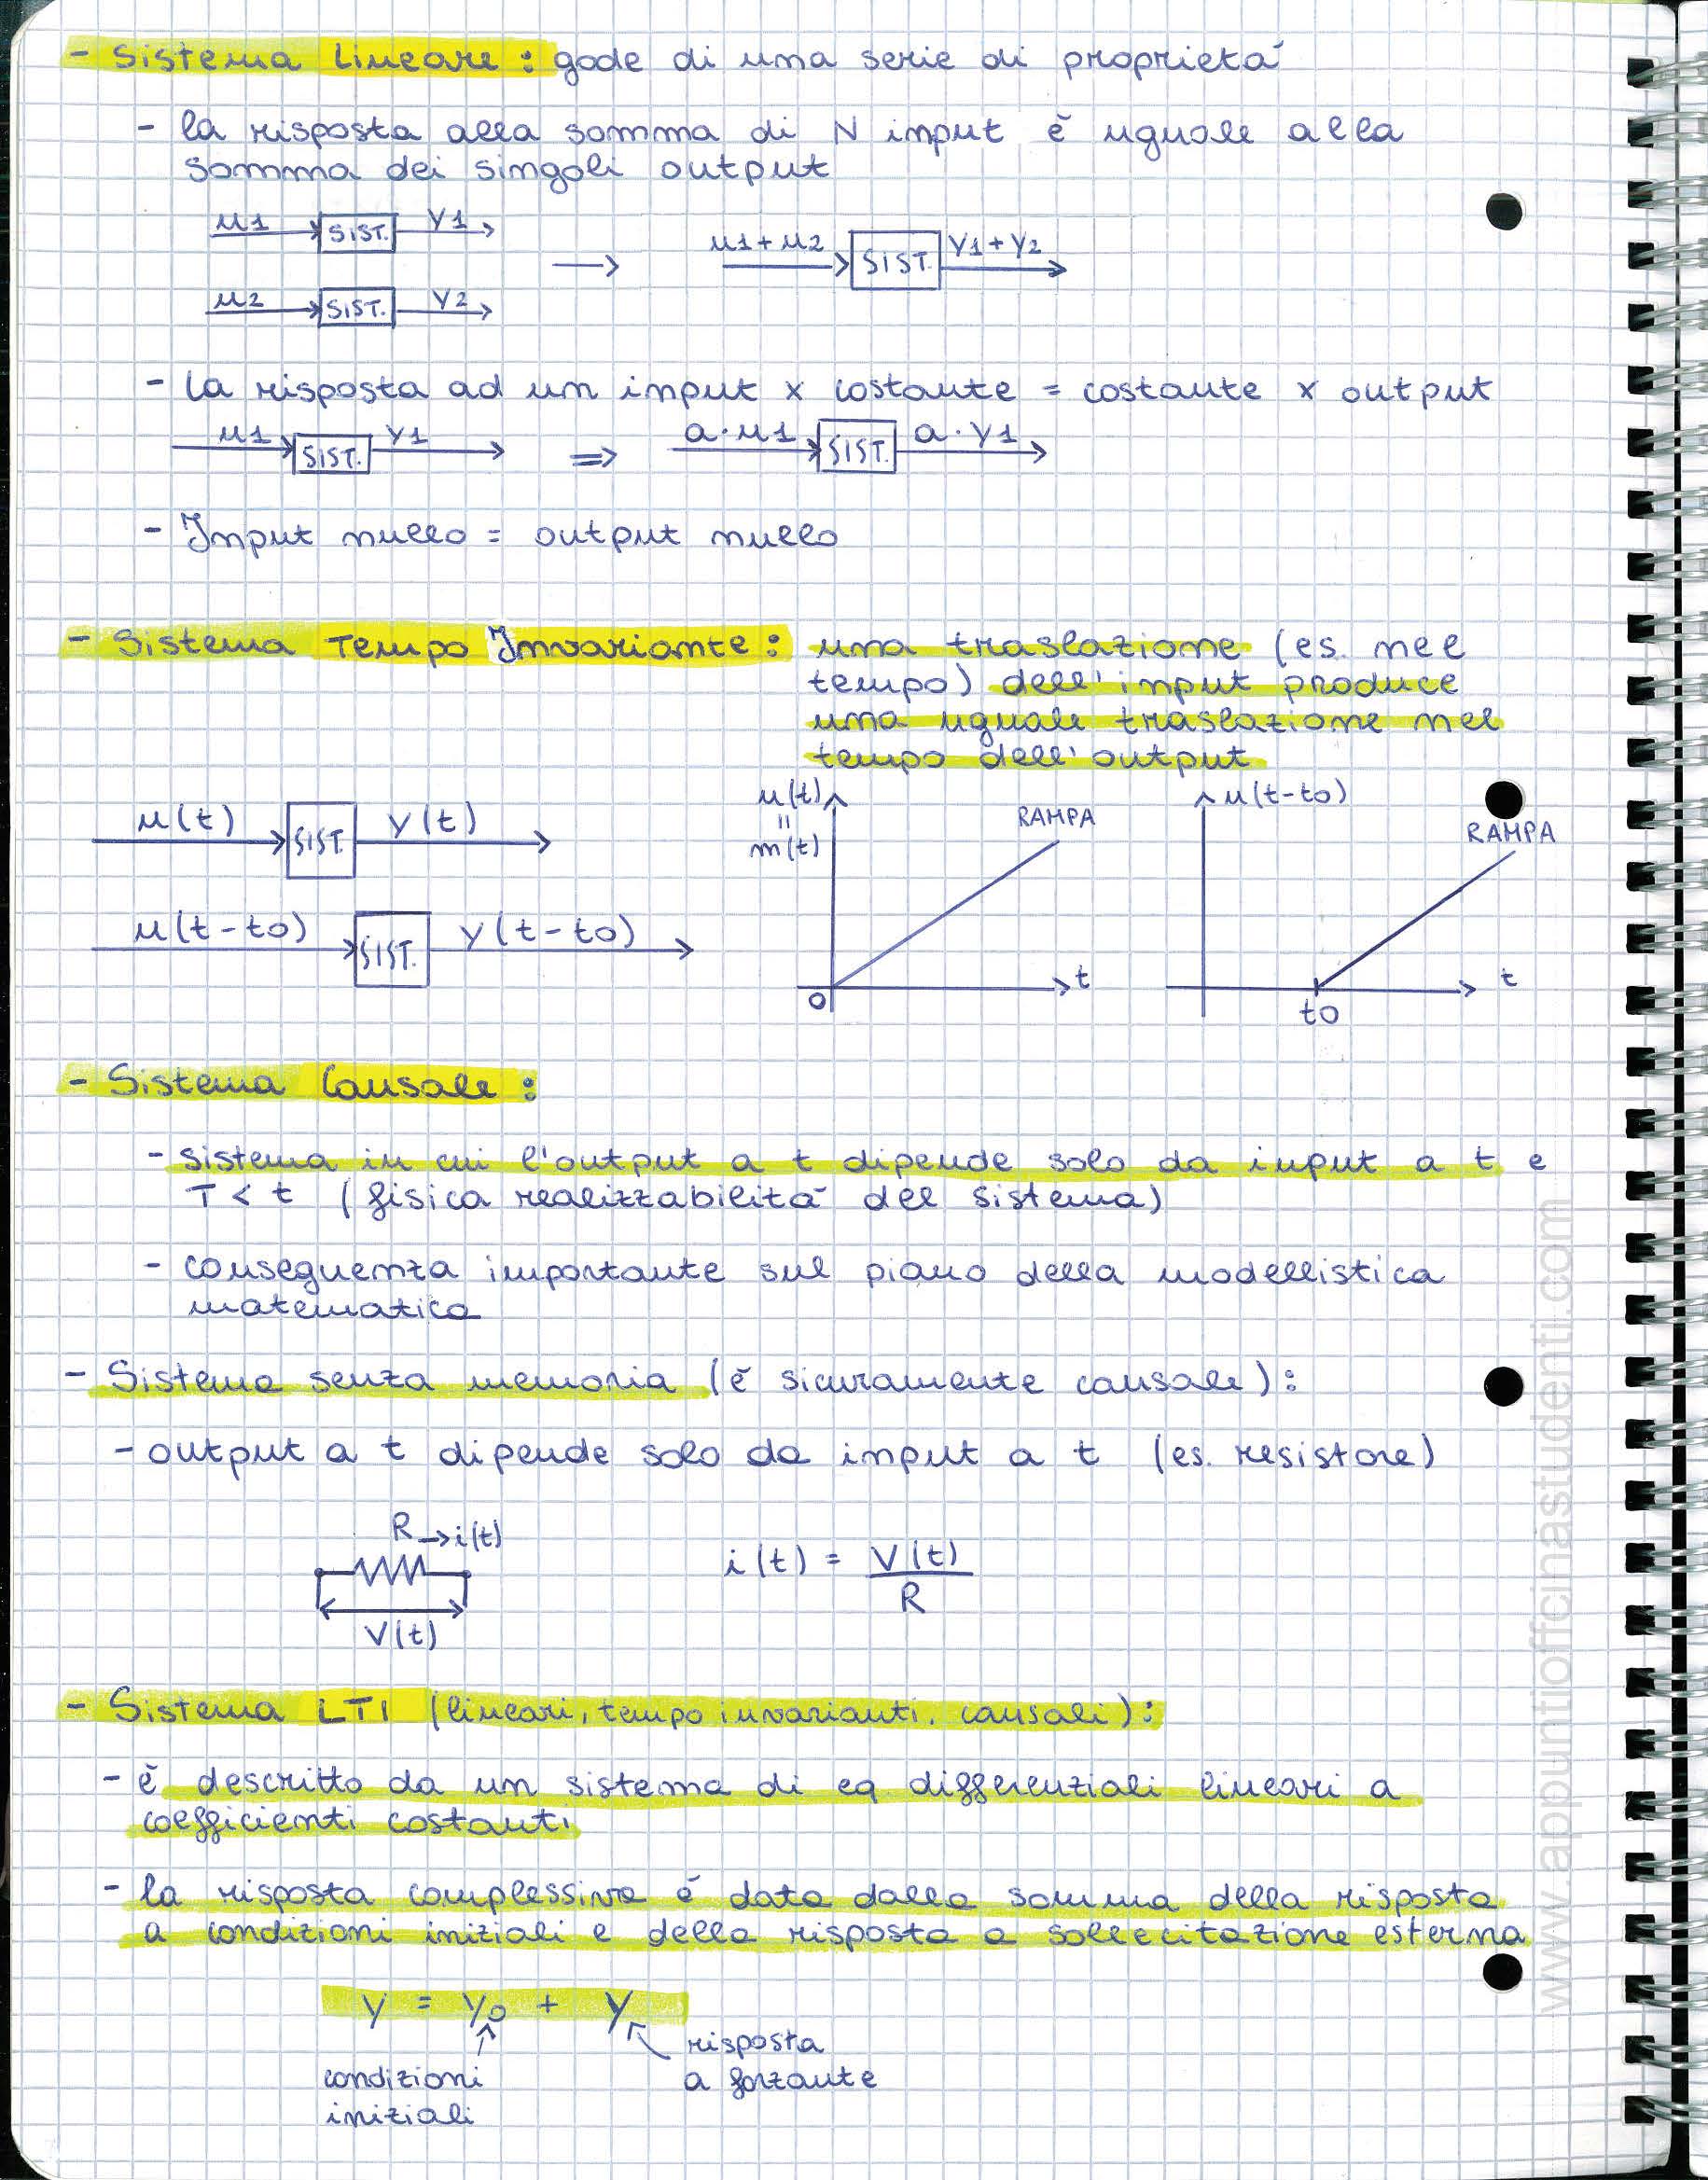 - Sistema Lineare : gode di una serie di proprietá
- la risposta alla somma di N input é uguale alla
somma dei singoli output
u1 SIST. y1
u2 SIST. y2
u1+u2 SIST. y1+y2
- la risposta ad un input x costante = costante x output
u1 SIST. y1 => a·u1 SIST. a·y1
- Input nullo = output nullo
- Sistema Tempo Invariante : una traslazione (es. nel
tempo) dell'input produce
una uguale traslazione nel
tempo dell'output
u(t) SIST. y(t)
u(t-to) SIST. y(t-to)
u(t)
=
m(t)
RAMPA
0
t
u(t-to)
RAMPA
to
t
- Sistema Causale :
- sistema in cui l'output a t dipende solo da input a t e
T < t (fisica realizzabilitá del sistema)
- conseguenza importante sul piano della modellistica
matematica
- Sistema senza memoria (é sicuramente causale) :
- output a t dipende solo da input a t (es. resistore)
R → i(t)
V(t)
i(t) = V(t)
R
- Sistema LTI (lineari, tempo invarianti, causali) :
- é descritto da un sistema di eq differenziali lineari a
coefficienti costanti
- la risposta complessiva é data dalla somma della risposta
a condizioni iniziali e della risposta a sollecitazione esterna
y = yo + y
condizioni
iniziali
risposta
a forzante
www.appuntiofficinastudenti.com